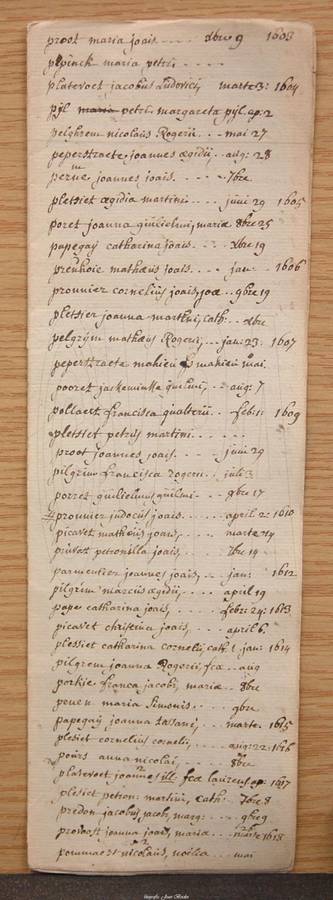 proost maria joais .... xbre 9 1603
plpinck maria petri ....
platevoet jacobus Ludovici, marte 3: 1604
pijl maria petri. margareta pijl. ap: 2
pelghrem nicolaus Rogerii .... mai 27
peperstraete joannes ægidii, aug: 28
perne joannes joais .... 7bre
pletsiet ægidia martini .... juni 29 1605
poret joanna guilielmi, mariæ 8bre 25
papegay catharina joais .... xbre 19
preuhoie mathæus joais .... jan: 1606
prounier cornelius joais, joæ .. 9bre 19
pletsier joanna martini, cath: .. xbre
pelgrijm mathæus Rogeri, .. jan: 23: 1607
peperstraete mahieu mahieu mai.
pooret jackeminkle guilmi, .. aug: 7
pollaert francisca gualterii .. feb: 1: 1609
pletsiet petrus martini ....
proot joannes joais .... juni 29
pilgrim francisca rogerii .. juli 3
porret guilielmus guilmi - - - 9bre 17
prounnier judocus joais ..... april 2: 1610
picavet mathæus joais, .... marte 24
petronilla joais, .... 7bre 19
parmentier joannes joais, .. jan: 1612
pilgrim marcus ægidii, .. april 19
pape catharina joais, .... febr: 24: 1613
picavet christina joais, .... april 6.
plessiet catharina cornelii, cath. jan: 1614
pilgrem joanna Rogerii, fcæ .. aug
porkie franca jacobi, mariæ .. 8bre
peuen maria simonis .... 9bre
papegay joanna .. marte. 1615
plesiet cornelius cornelii, .. aug: 22: 1616
pours anna nicolai, ... 8bre
platevoet joannes fcæ 1617
plisiet petron: martini, cath: 7bre 8
predon jacobus jacob, marg: .. 9bre 9
provoost joanna joais, maria .. marte 1618
nicolaus, .. mai